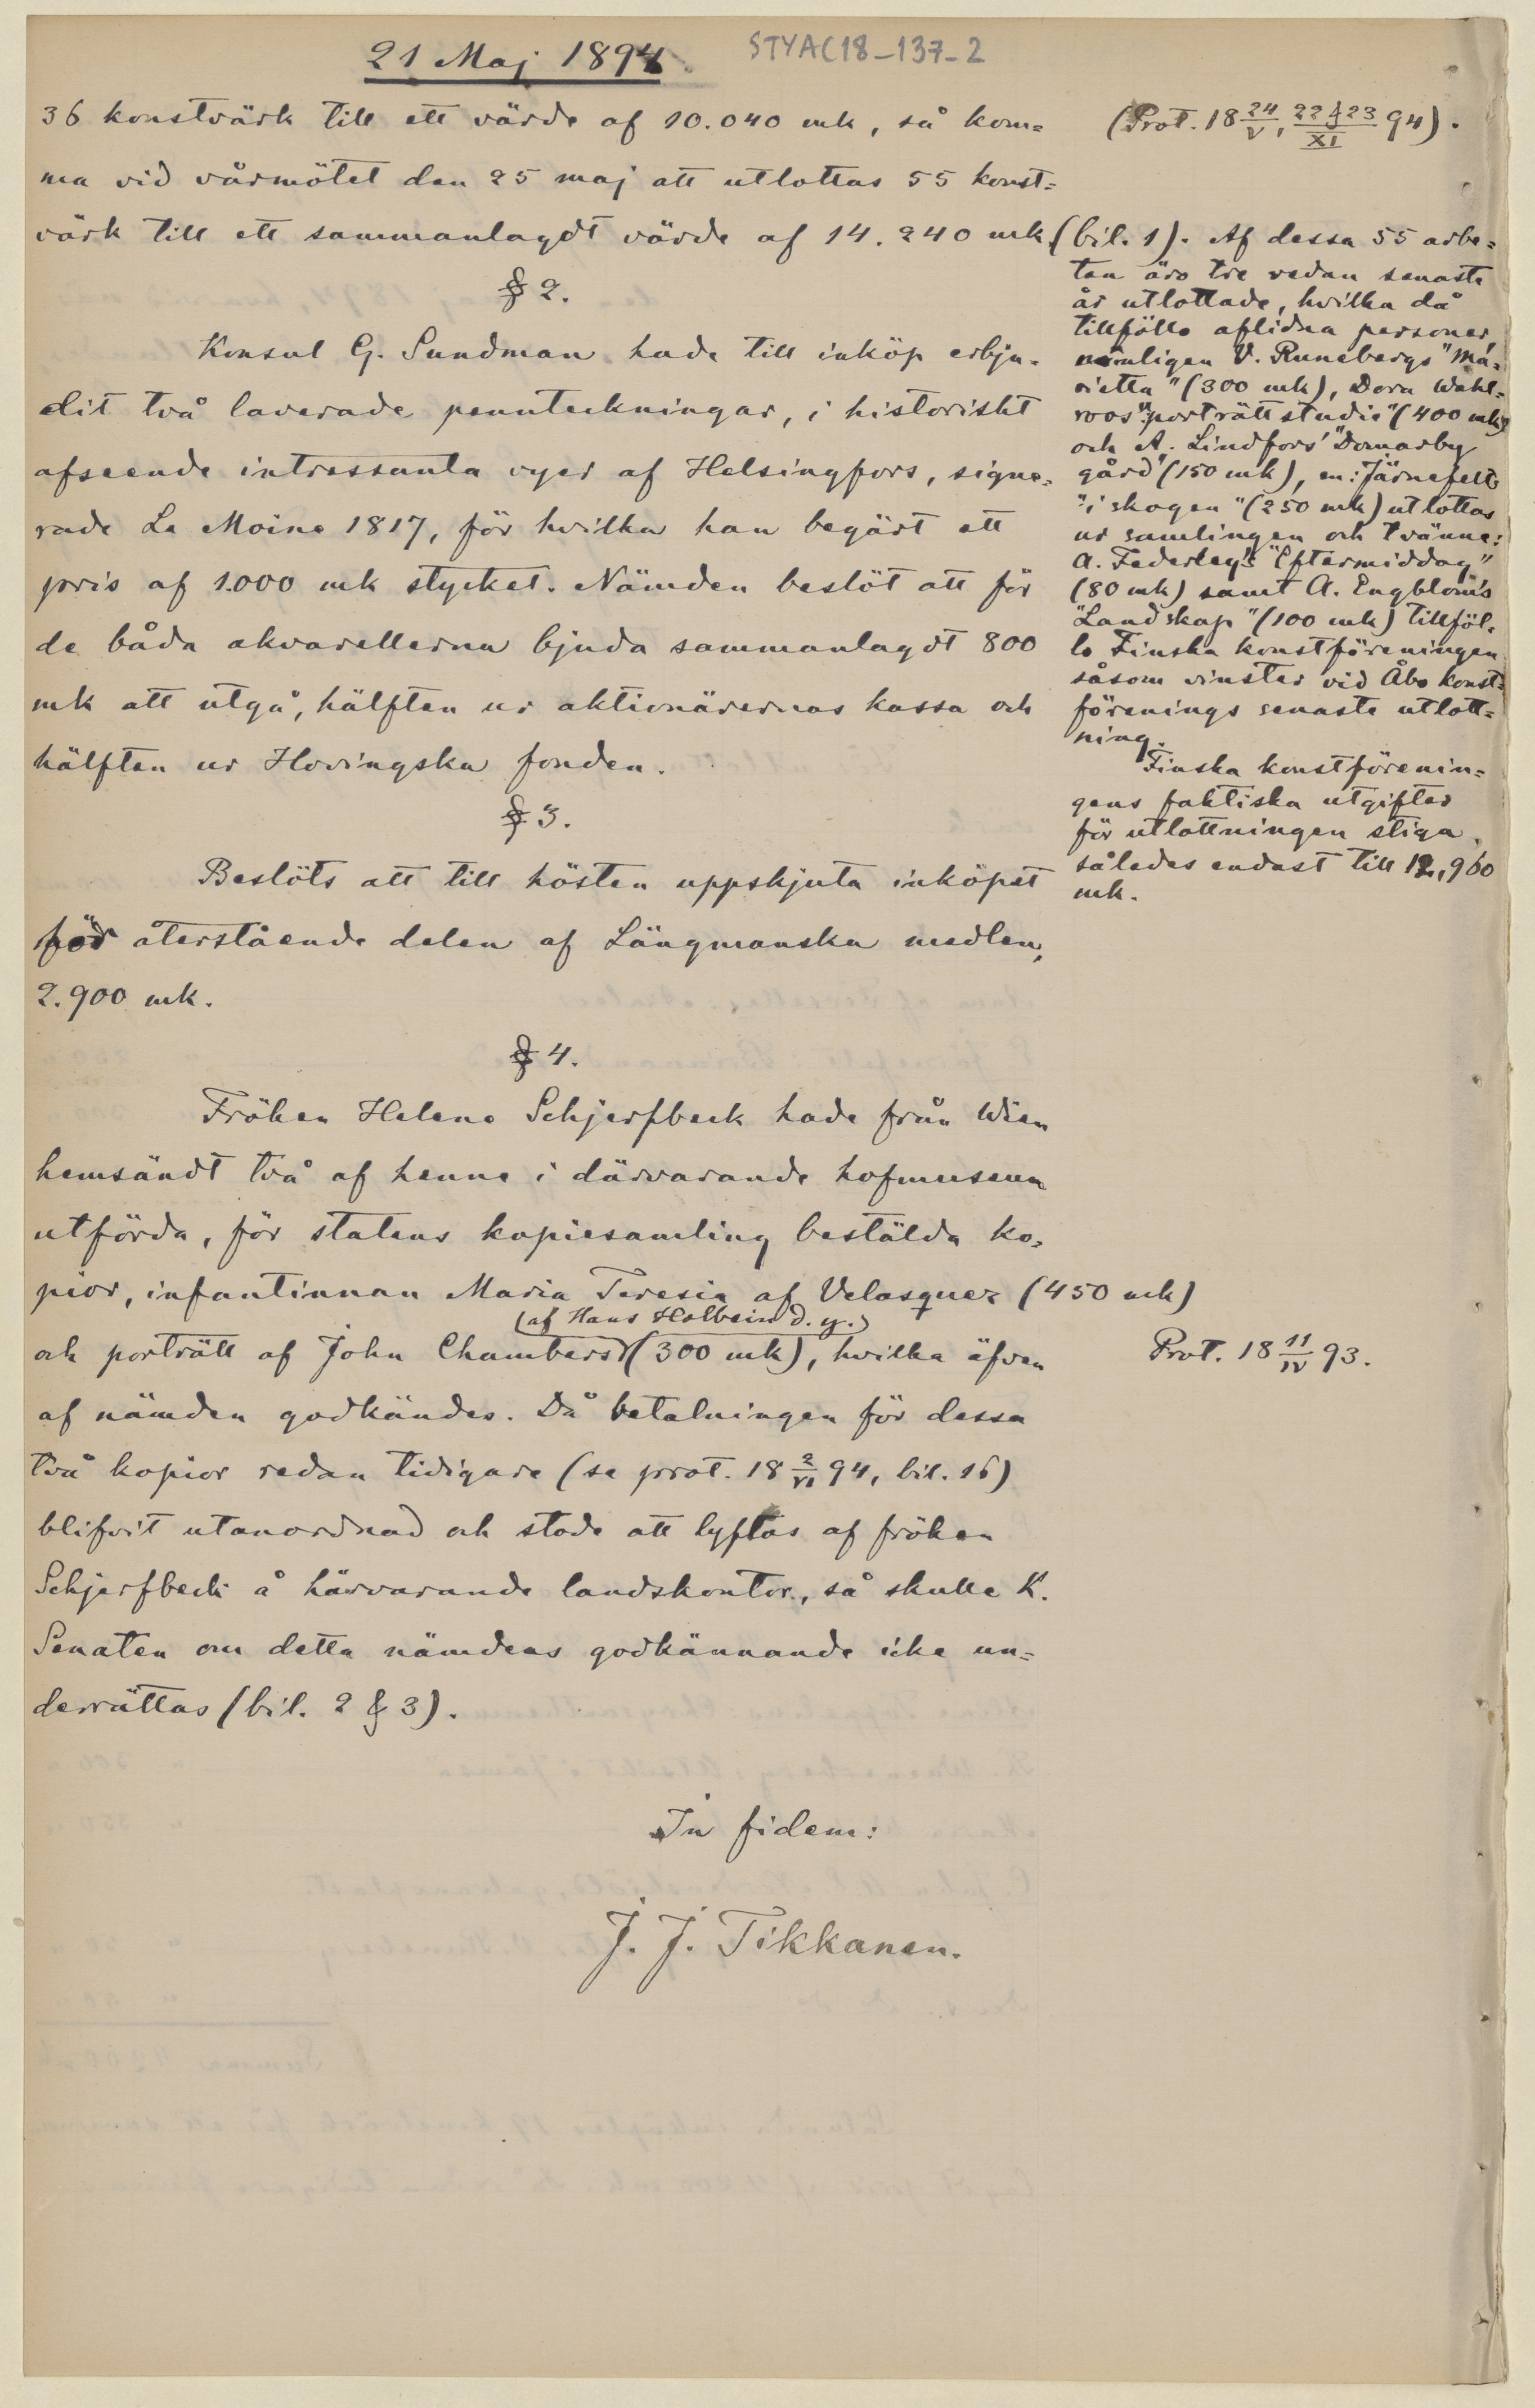 21 Maj 1894.
STYA C18-137-2
36 konstvärk till ett värde af 10.040 mk, så kom=
ma vid vårmötet den 25 maj att utlottas 55 konst=
värk till ett sammanlagdt värde af 14.240 mk
§ 2.
Konsul G. Sundman hade till inköp erbju=
dit två laverade pennteckningar, i historiskt
afseende intressanta vyer af Helsingfors, signe=
rade Le Moine 1817, för hvilka han begärt ett
pris af 1.000 mk stycket. Nämden beslöt att för
de båda akvarellerna bjuda sammanlagdt 800
mk att utgå, hälften ur aktionärernas kassa och
hälften ur Hovingska fonden.
§ 3.
Beslöts att till hösten uppskjuta inköpet
för återstående delen af Längmanska medlen,
2.900 mk.
§ 4.
Fröken Helene Schjerfbeck hade från Wien
hemsändt två af henne i därvarande hofmuseum
utförda, för statens kopiesamling bestälda ko=
pior, infantinnan Maria Teresia af Velasquez (450 mk)
(af Hans Holbein d. y.)
och porträtt af John Chambers (300 mk), hvilka äfven
af nämden godkändes. Då betalningen för dessa
två kopior redan tidigare (se prot. 18 2/VI 94, bil. 16)
blifvit utanordnad och stode att lyftas af fröken
Schjerfbeck å härvarande landskontor, så skulle K.
Senaten om detta nämdens godkännande icke un=
derrättas (bil. 2 & 3).
In fidem:
J. J. Tikkanen.
(Prot. 18 24/V, 22 & 23/XI 94).
(bil. 1). Af dessa 55 arbe=
ten äro tre redan senaste
år utlottade, hvilka då
tillföllo aflidna personer,
nämligen V. Runebergs "Ma=
rietta" (300 mk), Dora Wahl=
roos' "porträttstudie" (400 mk)
och A. Lindfors' "Domarby
gård" (150 mk), en: Järnefelts
"i skogen" (250 mk) utlottas
ur samlingen och tvänne:
A. Federley's "Eftermiddag"
(80 mk) samt A. Engblom's
"Landskap" (100 mk) tillföl=
lo Finska konstföreningen
såsom vinster vid Åbo konst=
förenings senaste utlott=
ning.
Finska konstförenin=
gens faktiska utgifter
för utlottningen stiga
således endast till 12,960
mk.
Prot. 18 11/IV 93.